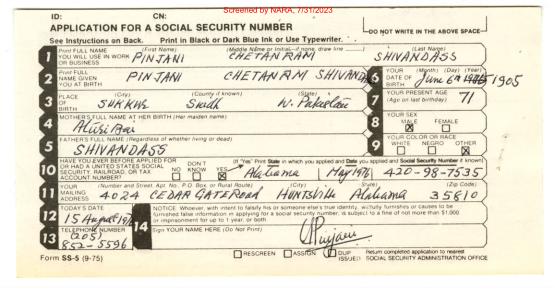 Screened by NARA, 7/31/2023
ID: CN:
APPLICATION FOR A SOCIAL SECURITY NUMBER
DO NOT WRITE IN THE ABOVE SPACE
See Instructions on Back. Print in Black or Dark Blue Ink or Use Typewriter.
1 Print FULL NAME YOU WILL USE IN WORK OR BUSINESS (First Name) PINJANI (Middle Name or Initial—if none, draw line) CHETANRAM (Last Name) SHIVANDASS
2 Print FULL NAME GIVEN YOU AT BIRTH PINJANI CHETANRAM SHIVANDASS
6 YOUR DATE OF BIRTH (Month) (Day) (Year) June 6th 1905
3 PLACE OF BIRTH (City) SUKKUR (County if known) Sindh (State) W. Pakistan
7 YOUR PRESENT AGE (Age on last birthday) 71
4 MOTHER'S FULL NAME AT HER BIRTH (Her maiden name)
8 YOUR SEX MALE X FEMALE
5 FATHER'S FULL NAME (Regardless of whether living or dead) SHIVANDASS
9 YOUR COLOR OR RACE WHITE NEGRO OTHER X
10 HAVE YOU EVER BEFORE APPLIED FOR OR HAD A UNITED STATES SOCIAL SECURITY, RAILROAD, OR TAX ACCOUNT NUMBER? NO DON'T KNOW YES X (If "Yes" Print State in which you applied and Date you applied and Social Security Number if known) Alabama May 1976 420-98-7535
11 YOUR MAILING ADDRESS (Number and Street, Apt. No., P.O. Box, or Rural Route) 4024 CEDAR GATE Road (City) HUNTSVille (State) Alabama (Zip Code) 35810
12 TODAY'S DATE 15 August 1976
NOTICE: Whoever, with intent to falsify his or someone else's true identity, willfully furnishes or causes to be furnished false information in applying for a social security number, is subject to a fine of not more than $1,000 or imprisonment for up to 1 year, or both.
13 TELEPHONE NUMBER (205) 852-5596
14 Sign YOUR NAME HERE (Do Not Print) Pinjani
Form SS-5 (9-75) RESCREEN ASSIGN DUP ISSUED Return completed application to nearest SOCIAL SECURITY ADMINISTRATION OFFICE